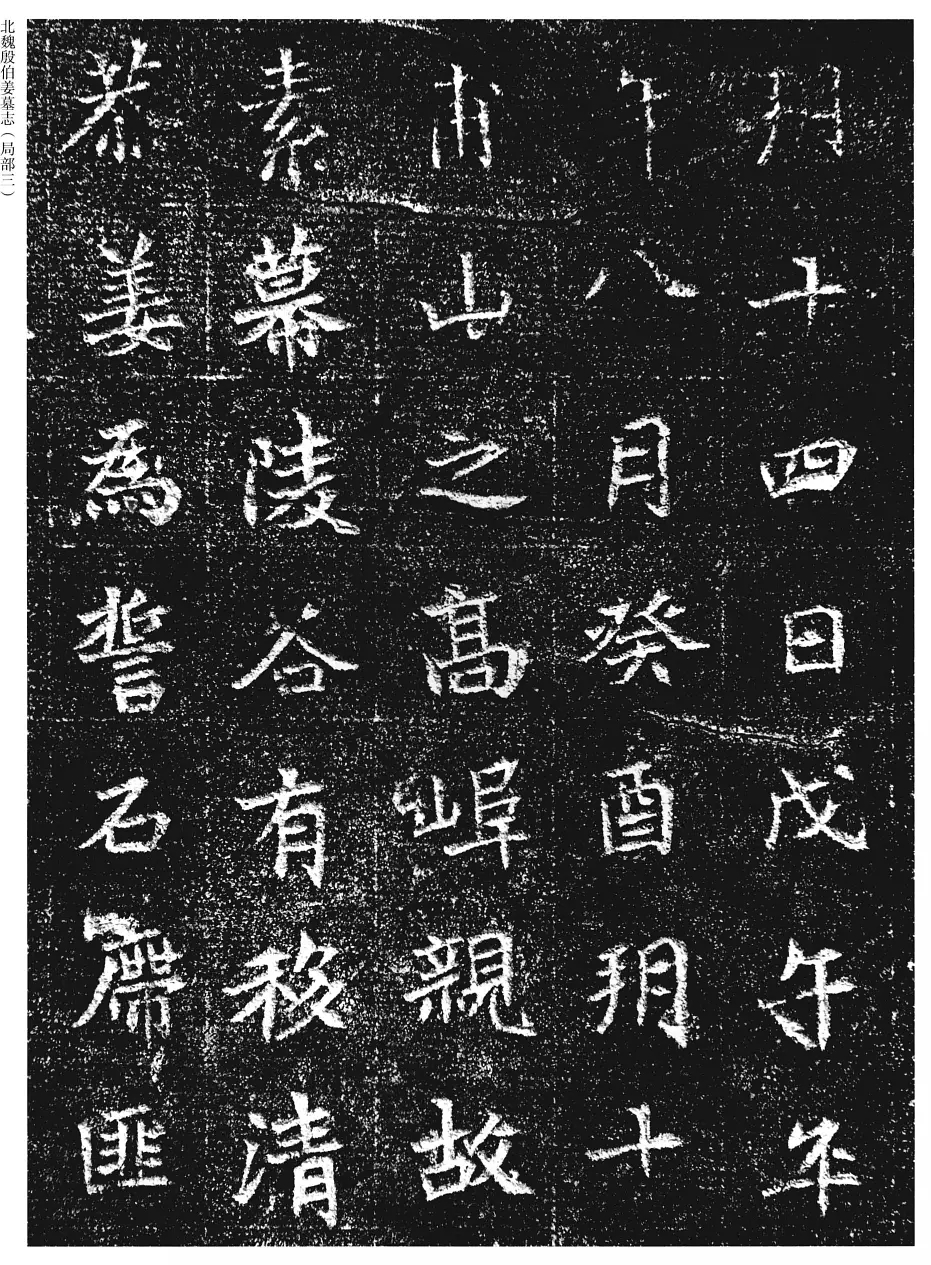 朔十四日戊午卒
午八月癸酉朔十
甫山之高親故
素幕陵谷有移清
恭姜為誓石席匪
北魏殷伯姜墓志（局部三）